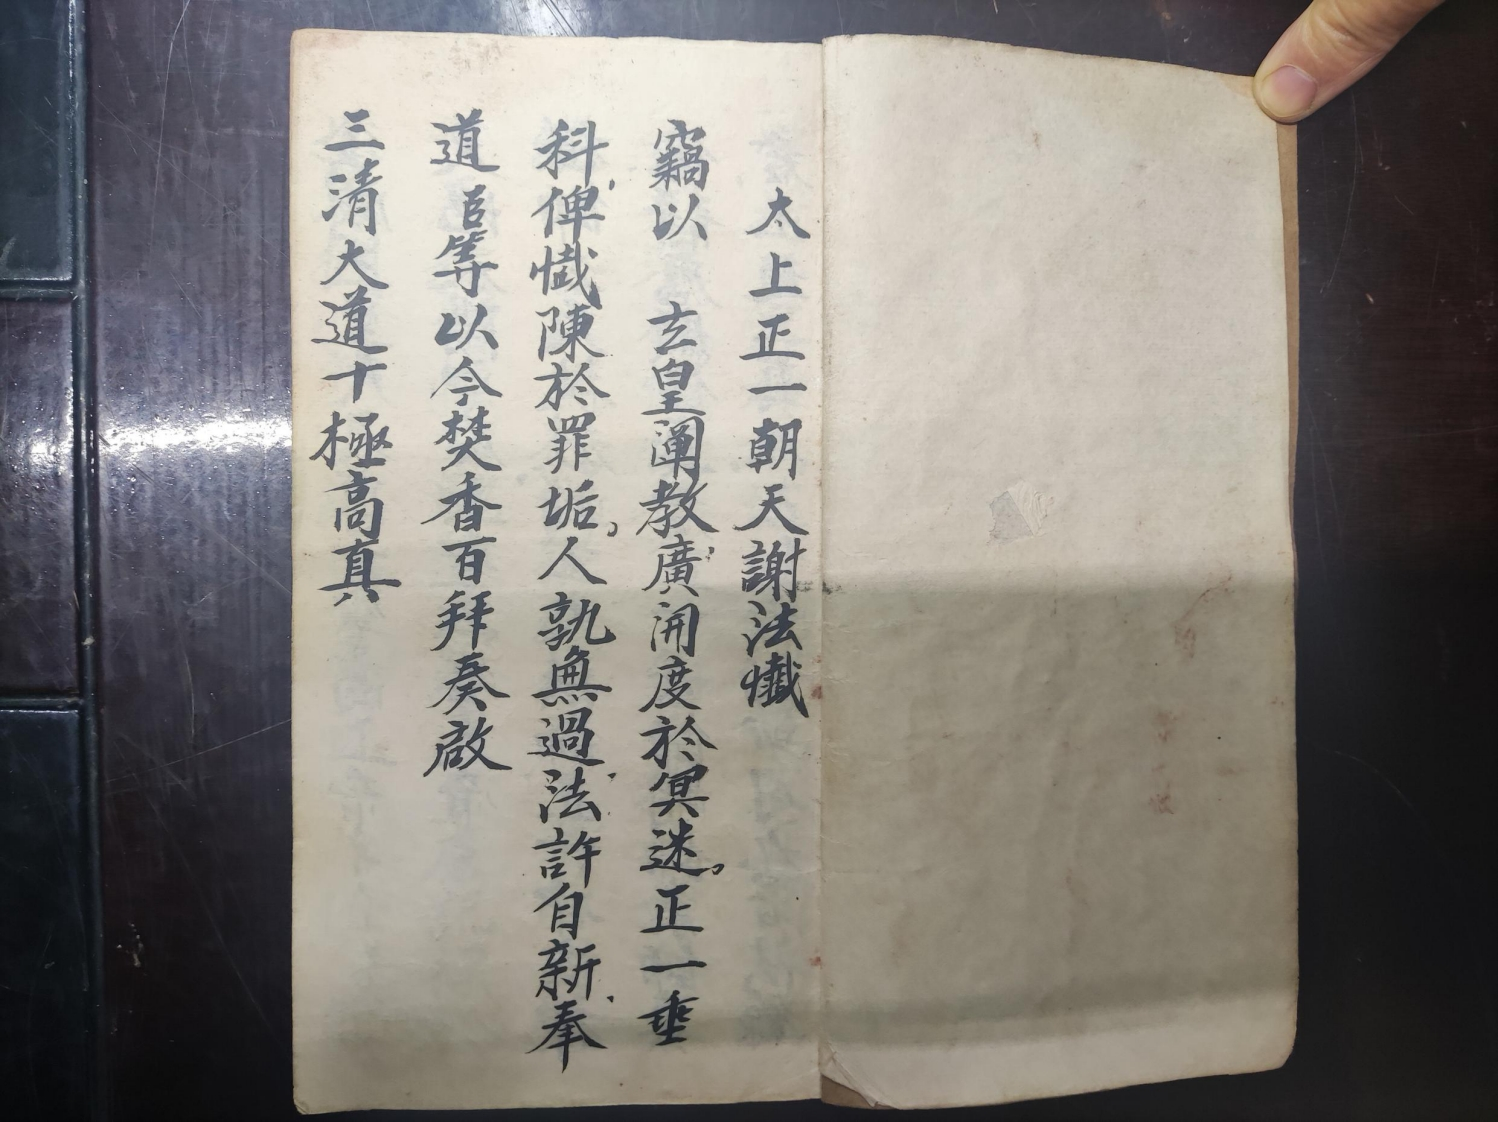 太上正一朝天謝法懺
竊以　玄皇闡教廣開度於冥迷正一垂
科俾懺陳於罪垢人孰無過法許自新奉
道臣等以今焚香百拜奏啟
三清大道十極高真